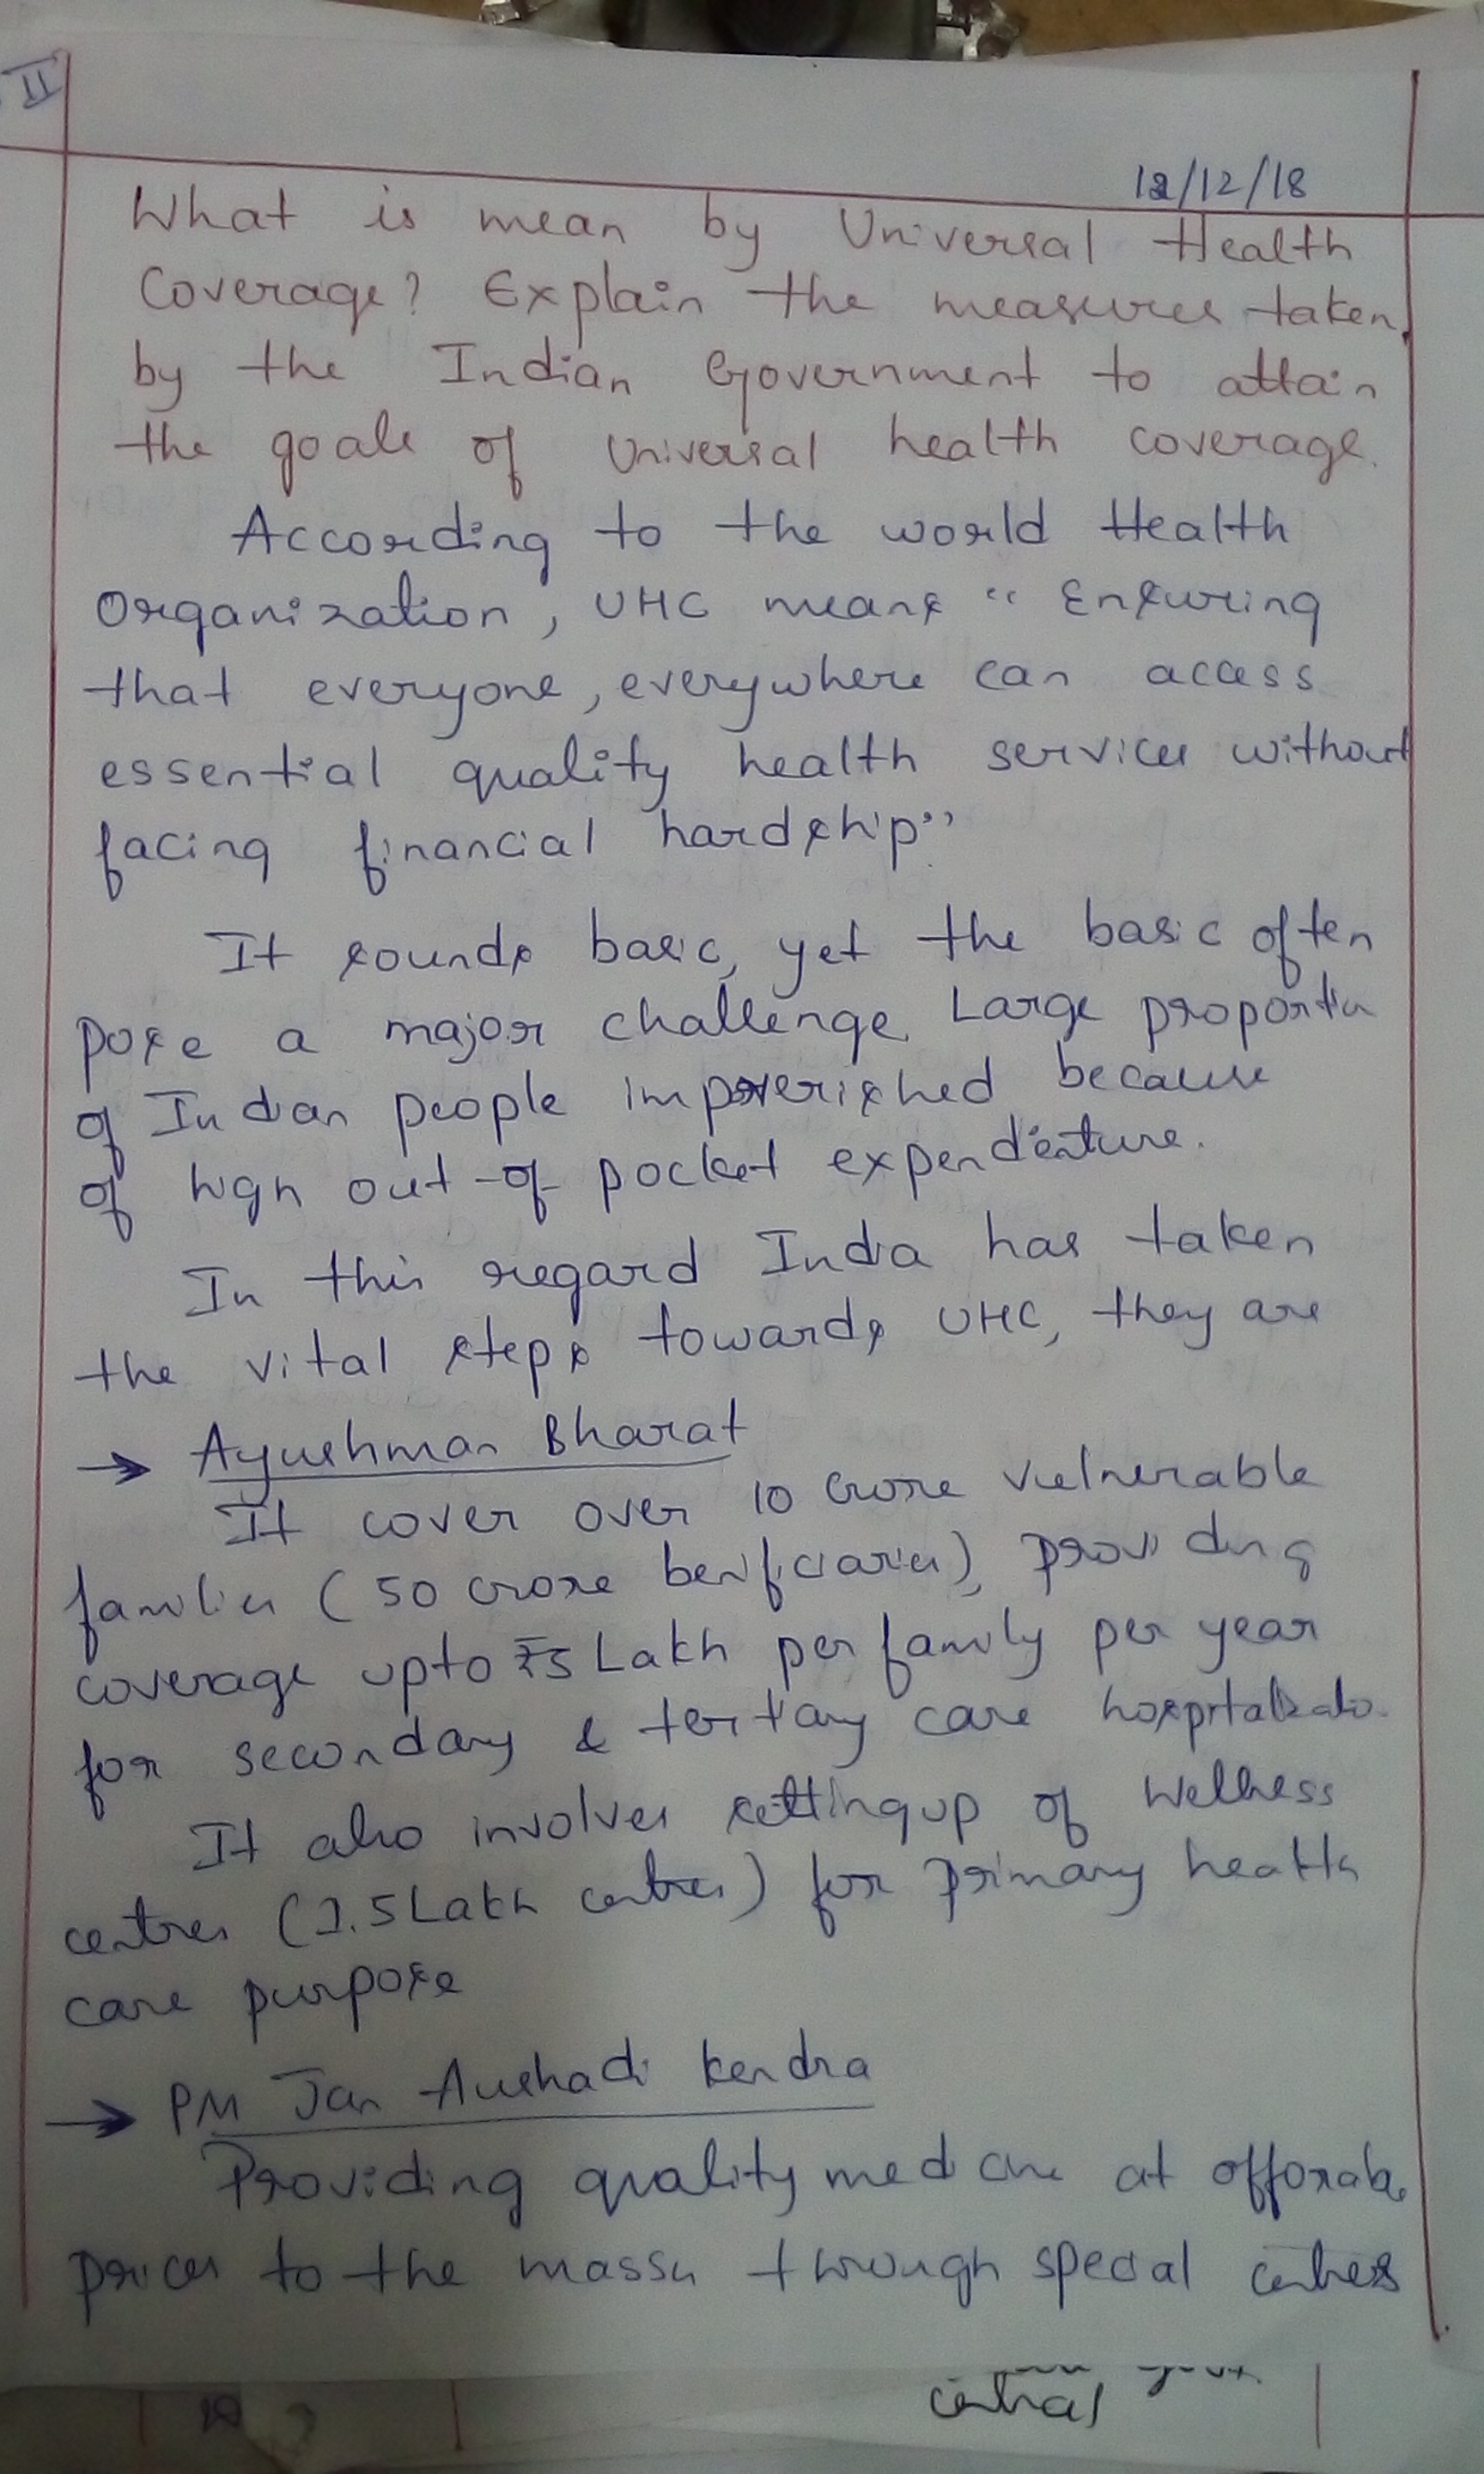 II
12/12/18
What is mean by Universal Health
Coverage? Explain the measures taken
by the Indian Government to attain
the goals of Universal health coverage.
According to the world Health
Organization, UHC means "Ensuring
that everyone, everywhere can access
essential quality health services without
facing financial hardship"
It sounds basic, yet the basic often
pose a major challenge. Large proportion
of Indian people impoverished because
of high out-of-pocket expenditure.
In this regard India has taken
the vital steps towards UHC, they are
→ Ayushman Bharat
It cover over 10 crore vulnerable
families (50 crore benificiaries), providing
coverage upto ₹5 Lakh per family per year
for secondary & tertiary care
It also involves settingup of wellness
centres (1.5 Lakh centres) for primary health
care purpose
→ PM Jan Aushadi Kendra
Providing quality medicine at
prices to the masses through special centres
central